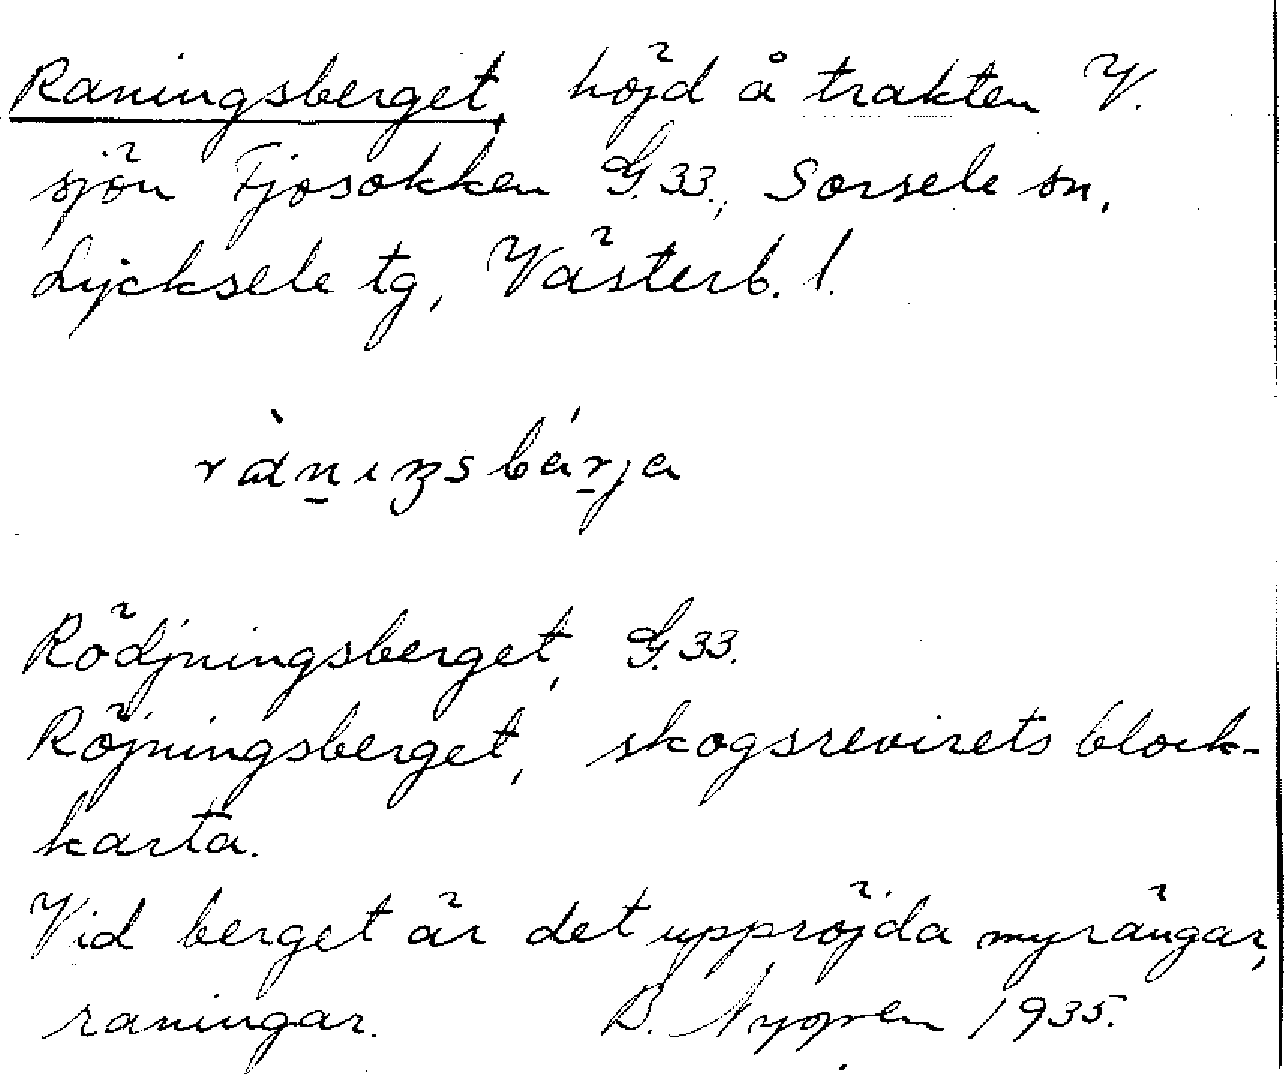 Raningsberget, höjd å trakten V.
sjön Fjosokken G.33., Sorsele sn,
Lycksele tg, Västerb. l.
rànıŋsbárja
Rödjningsberget, G.33.
Röjningsberget, skogsrevirets block-
karta.
Vid berget är det uppröjda myrängar,
raningar. B. Nygren 1935.